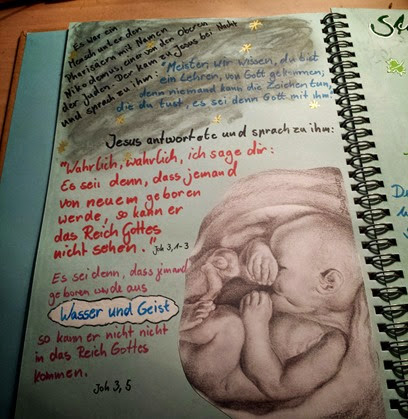 Es war ein
Mensch unter den
Pharisäern mit Namen
Nikodemus, einer von den Oberen
der Juden. Der kam zu Jesus bei Nacht
und sprach zu ihm:
"Meister, wir wissen, du bist
ein Lehrer, von Gott gekommen;
denn niemand kann die Zeichen tun,
die du tust, es sei denn Gott mit ihm."
Jesus antwortete und sprach zu ihm:
"Wahrlich, wahrlich, ich sage dir:
Es sei denn, dass jemand
von neuem geboren
werde, so kann er
das Reich Gottes
nicht sehen."
Joh 3, 1-3
Es sei denn, dass jemand
geboren werde aus
Wasser und Geist
so kann er nicht nicht
in das Reich Gottes
kommen.
Joh 3, 5